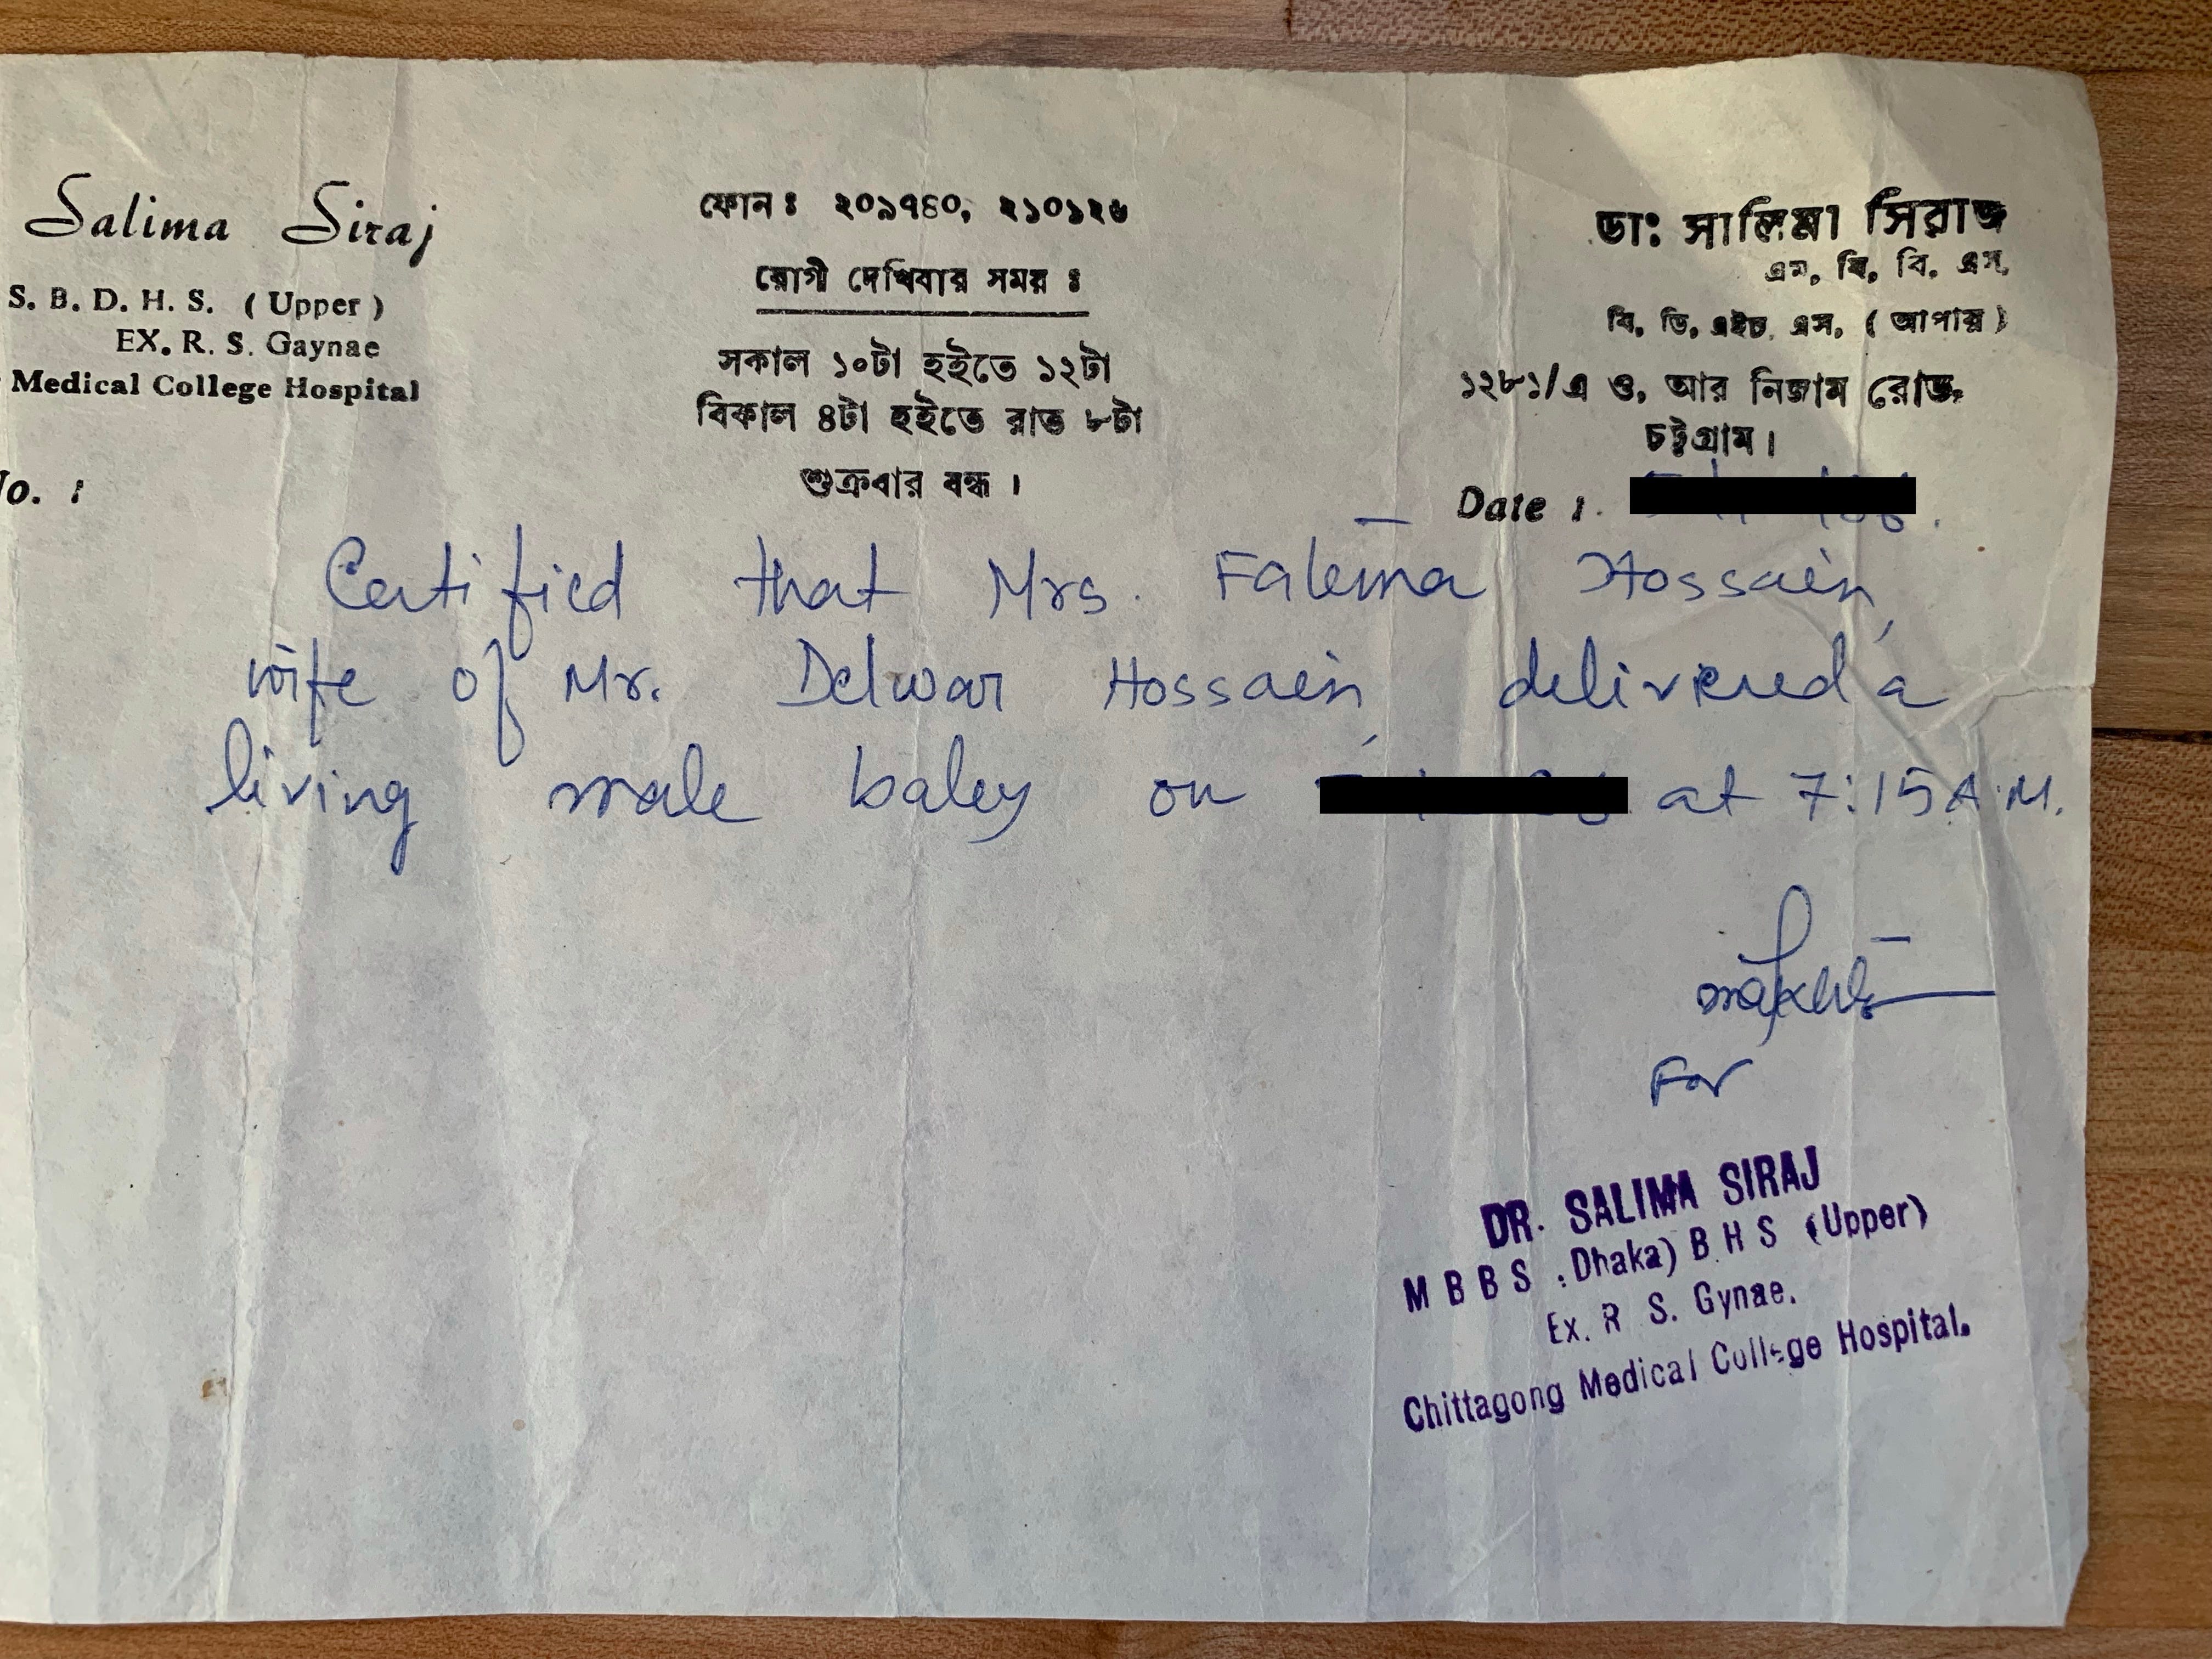 Salima Siraj
S. B. D. H. S. ( Upper )
EX. R. S. Gaynae
Medical College Hospital
No. :
ফোন : ২০৯৭৪০, ২১০১২৬
রোগী দেখিবার সময় :
সকাল ১০টা হইতে ১২টা
বিকাল ৪টা হইতে রাত ৮টা
শুক্রবার বন্ধ ।
ডা: সালিমা সিরাজ
এম, বি, বি, এস,
বি, ডি, এইচ, এস, ( আপার )
১২৮১/এ ও, আর নিজাম রোড,
চট্টগ্রাম ।
Date :
Certified that Mrs. Fatema Hossain,
wife of Mr. Delwar Hossain, delivered a
living male baby on at 7:15 A.M.
For
DR. SALIMA SIRAJ
M B B S : Dhaka) B H S (Upper)
Ex. R S. Gynae.
Chittagong Medical College Hospital.